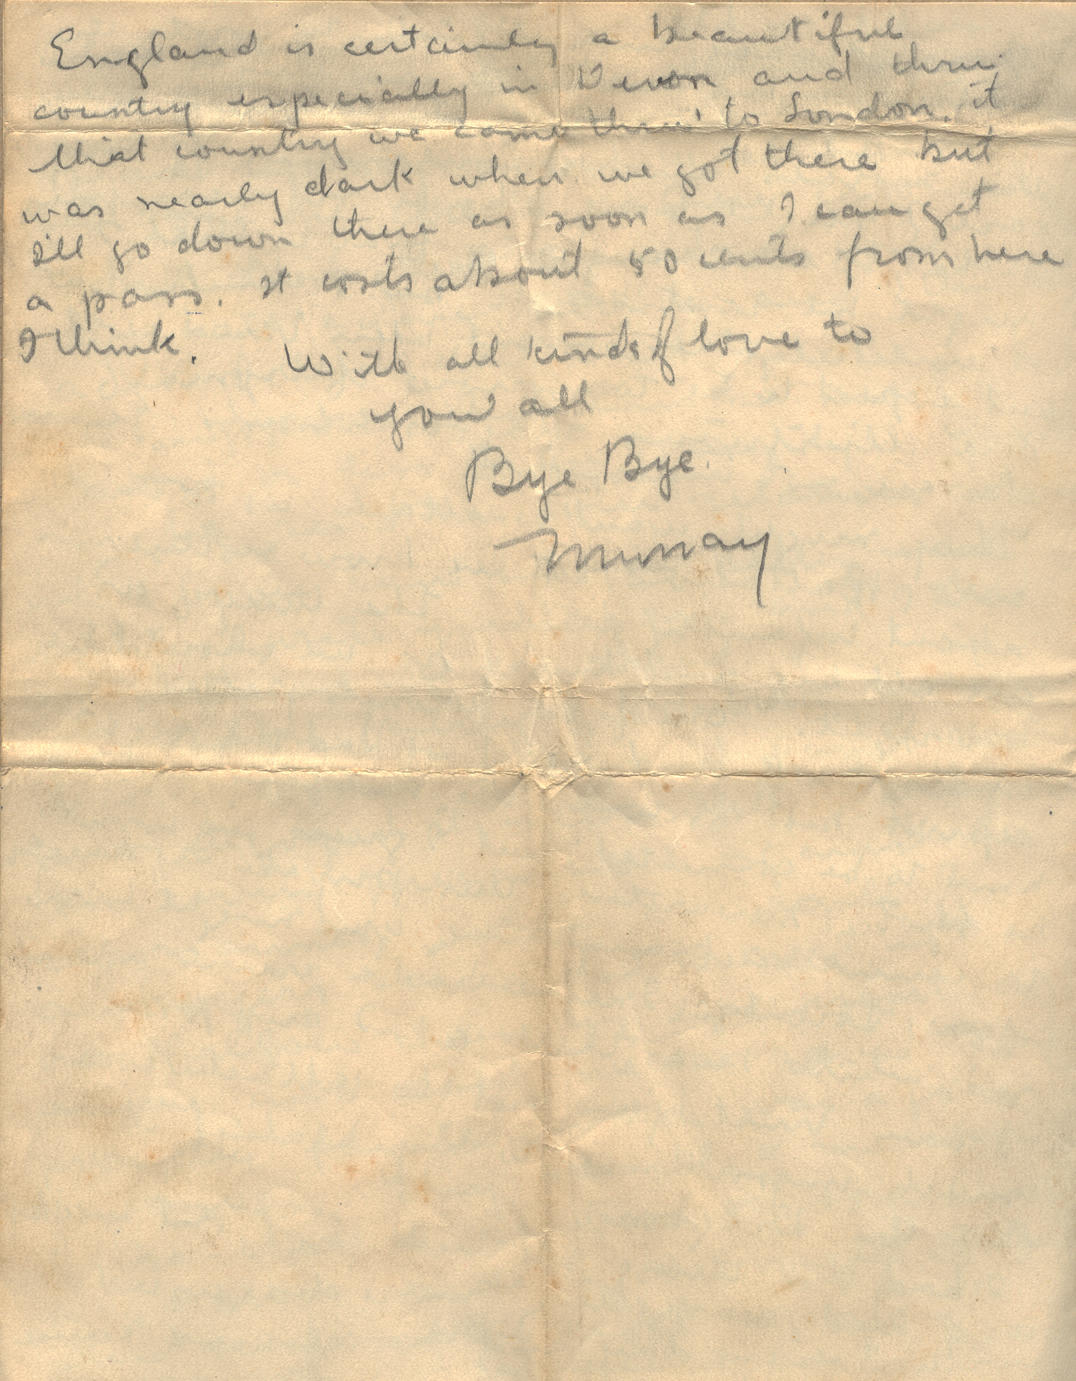 England is certainly a beautiful
country especially in Devon and thru
that country we came thru' to London. it
was nearly dark when we got there but
I'll go down there as soon as I can get
a pass. It costs about 50 cents from here
I think. With all kinds of love to
you all
Bye Bye
Murray